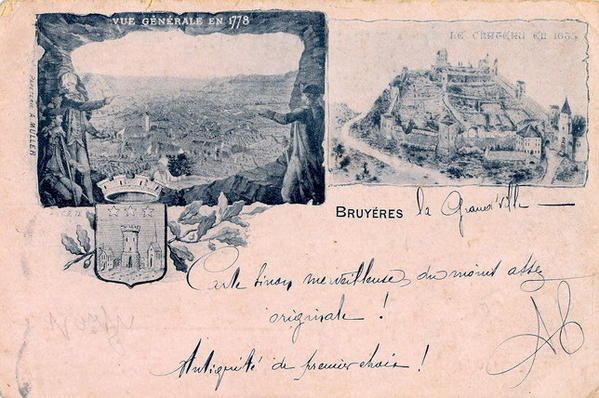 VUE GÉNÉRALE EN 1778
LE CHATEAU EN 1635
A. MULLER
BRUYÉRES la Grand'ville —
Carte sinon merveilleuse, du moins assez
originale !
Antiquité de premier choix !